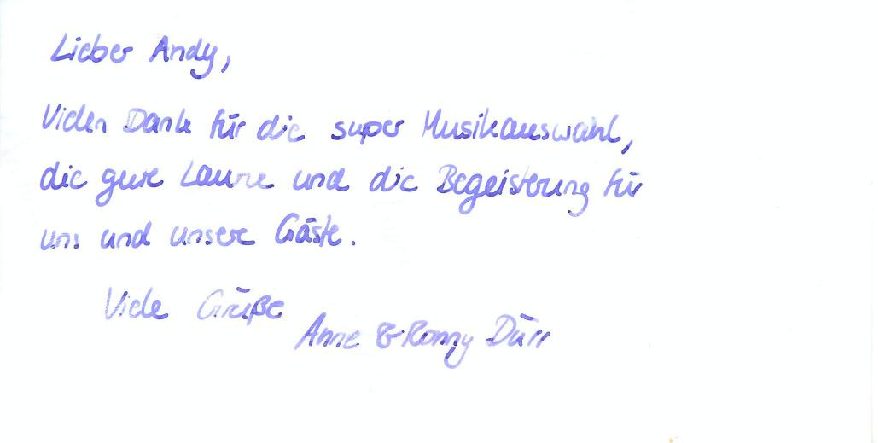 Lieber Andy,
Vielen Dank für die super Musikauswahl,
die gute Laune und die Begeisterung für
uns und unsere Gäste.
Viele Grüße
Anne & Ronny Dürr